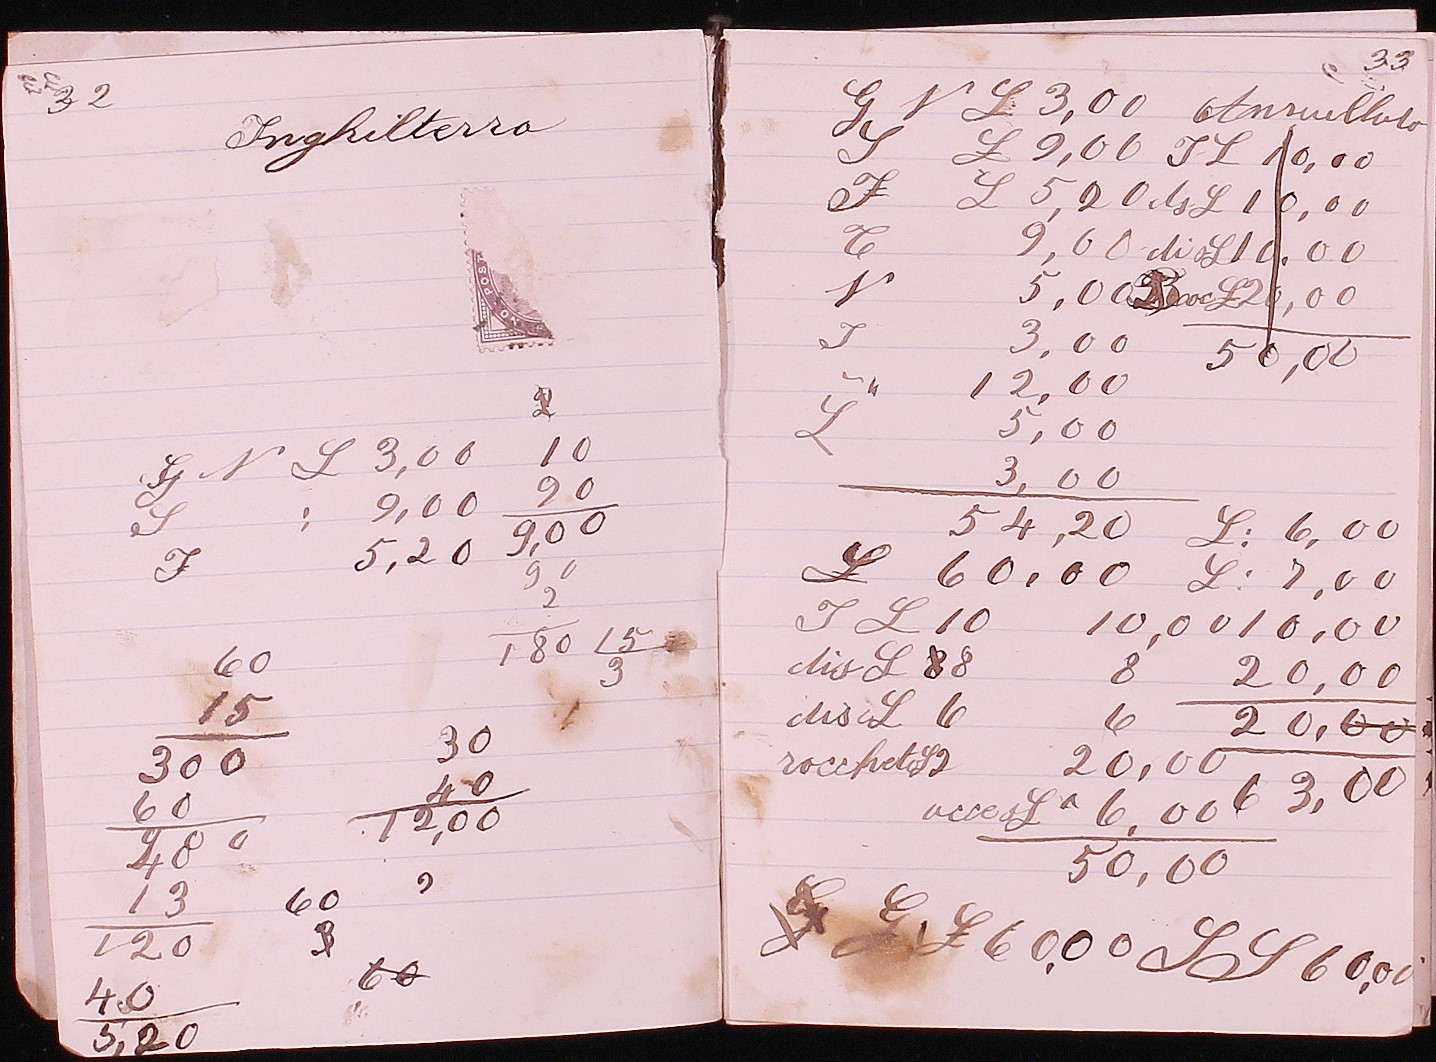 32
Inghilterra
POST
ONE
2
G N L 3,00 10
S : 9,00 90
9,00
F 5,20
90
2
180 15
3
60
15
300
60
480
13
120
40
5,20
30
40
12,00
2
60
3
60
33
G N L 3,00 Annullato
S L 9,00 T L 10,00
F L 5,20 dis L 10,00
T 9,00 dis L 10,00
N 5,00 L 20,00
T 3,00
50,00
" 12,00
L 5,00
3,00
54,20 L: 6,00
L 60,00 L: 7,00
T L 10 10,00 10,00
dis L 8 8 20,00
dis L 6 6 20,00
rocchet 20,00
63,00
acces L 6,00
50,00
G L 60,00 L S 60,00